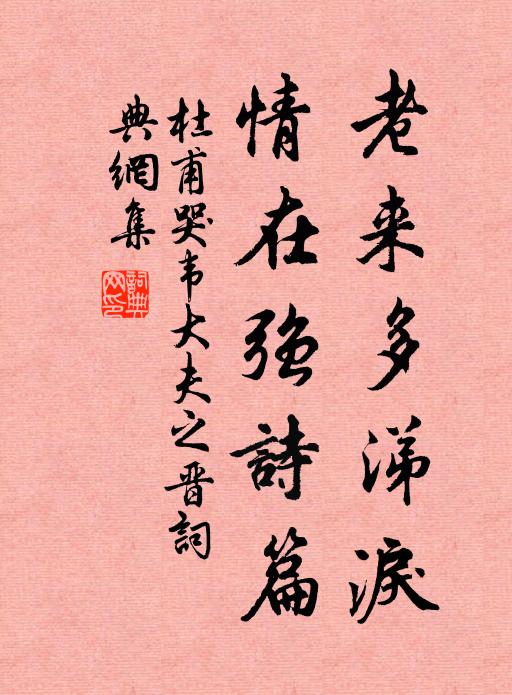 老来多涕淚
情在强詩篇
杜甫哭韦大夫之晋詞
典網集
詞典网印